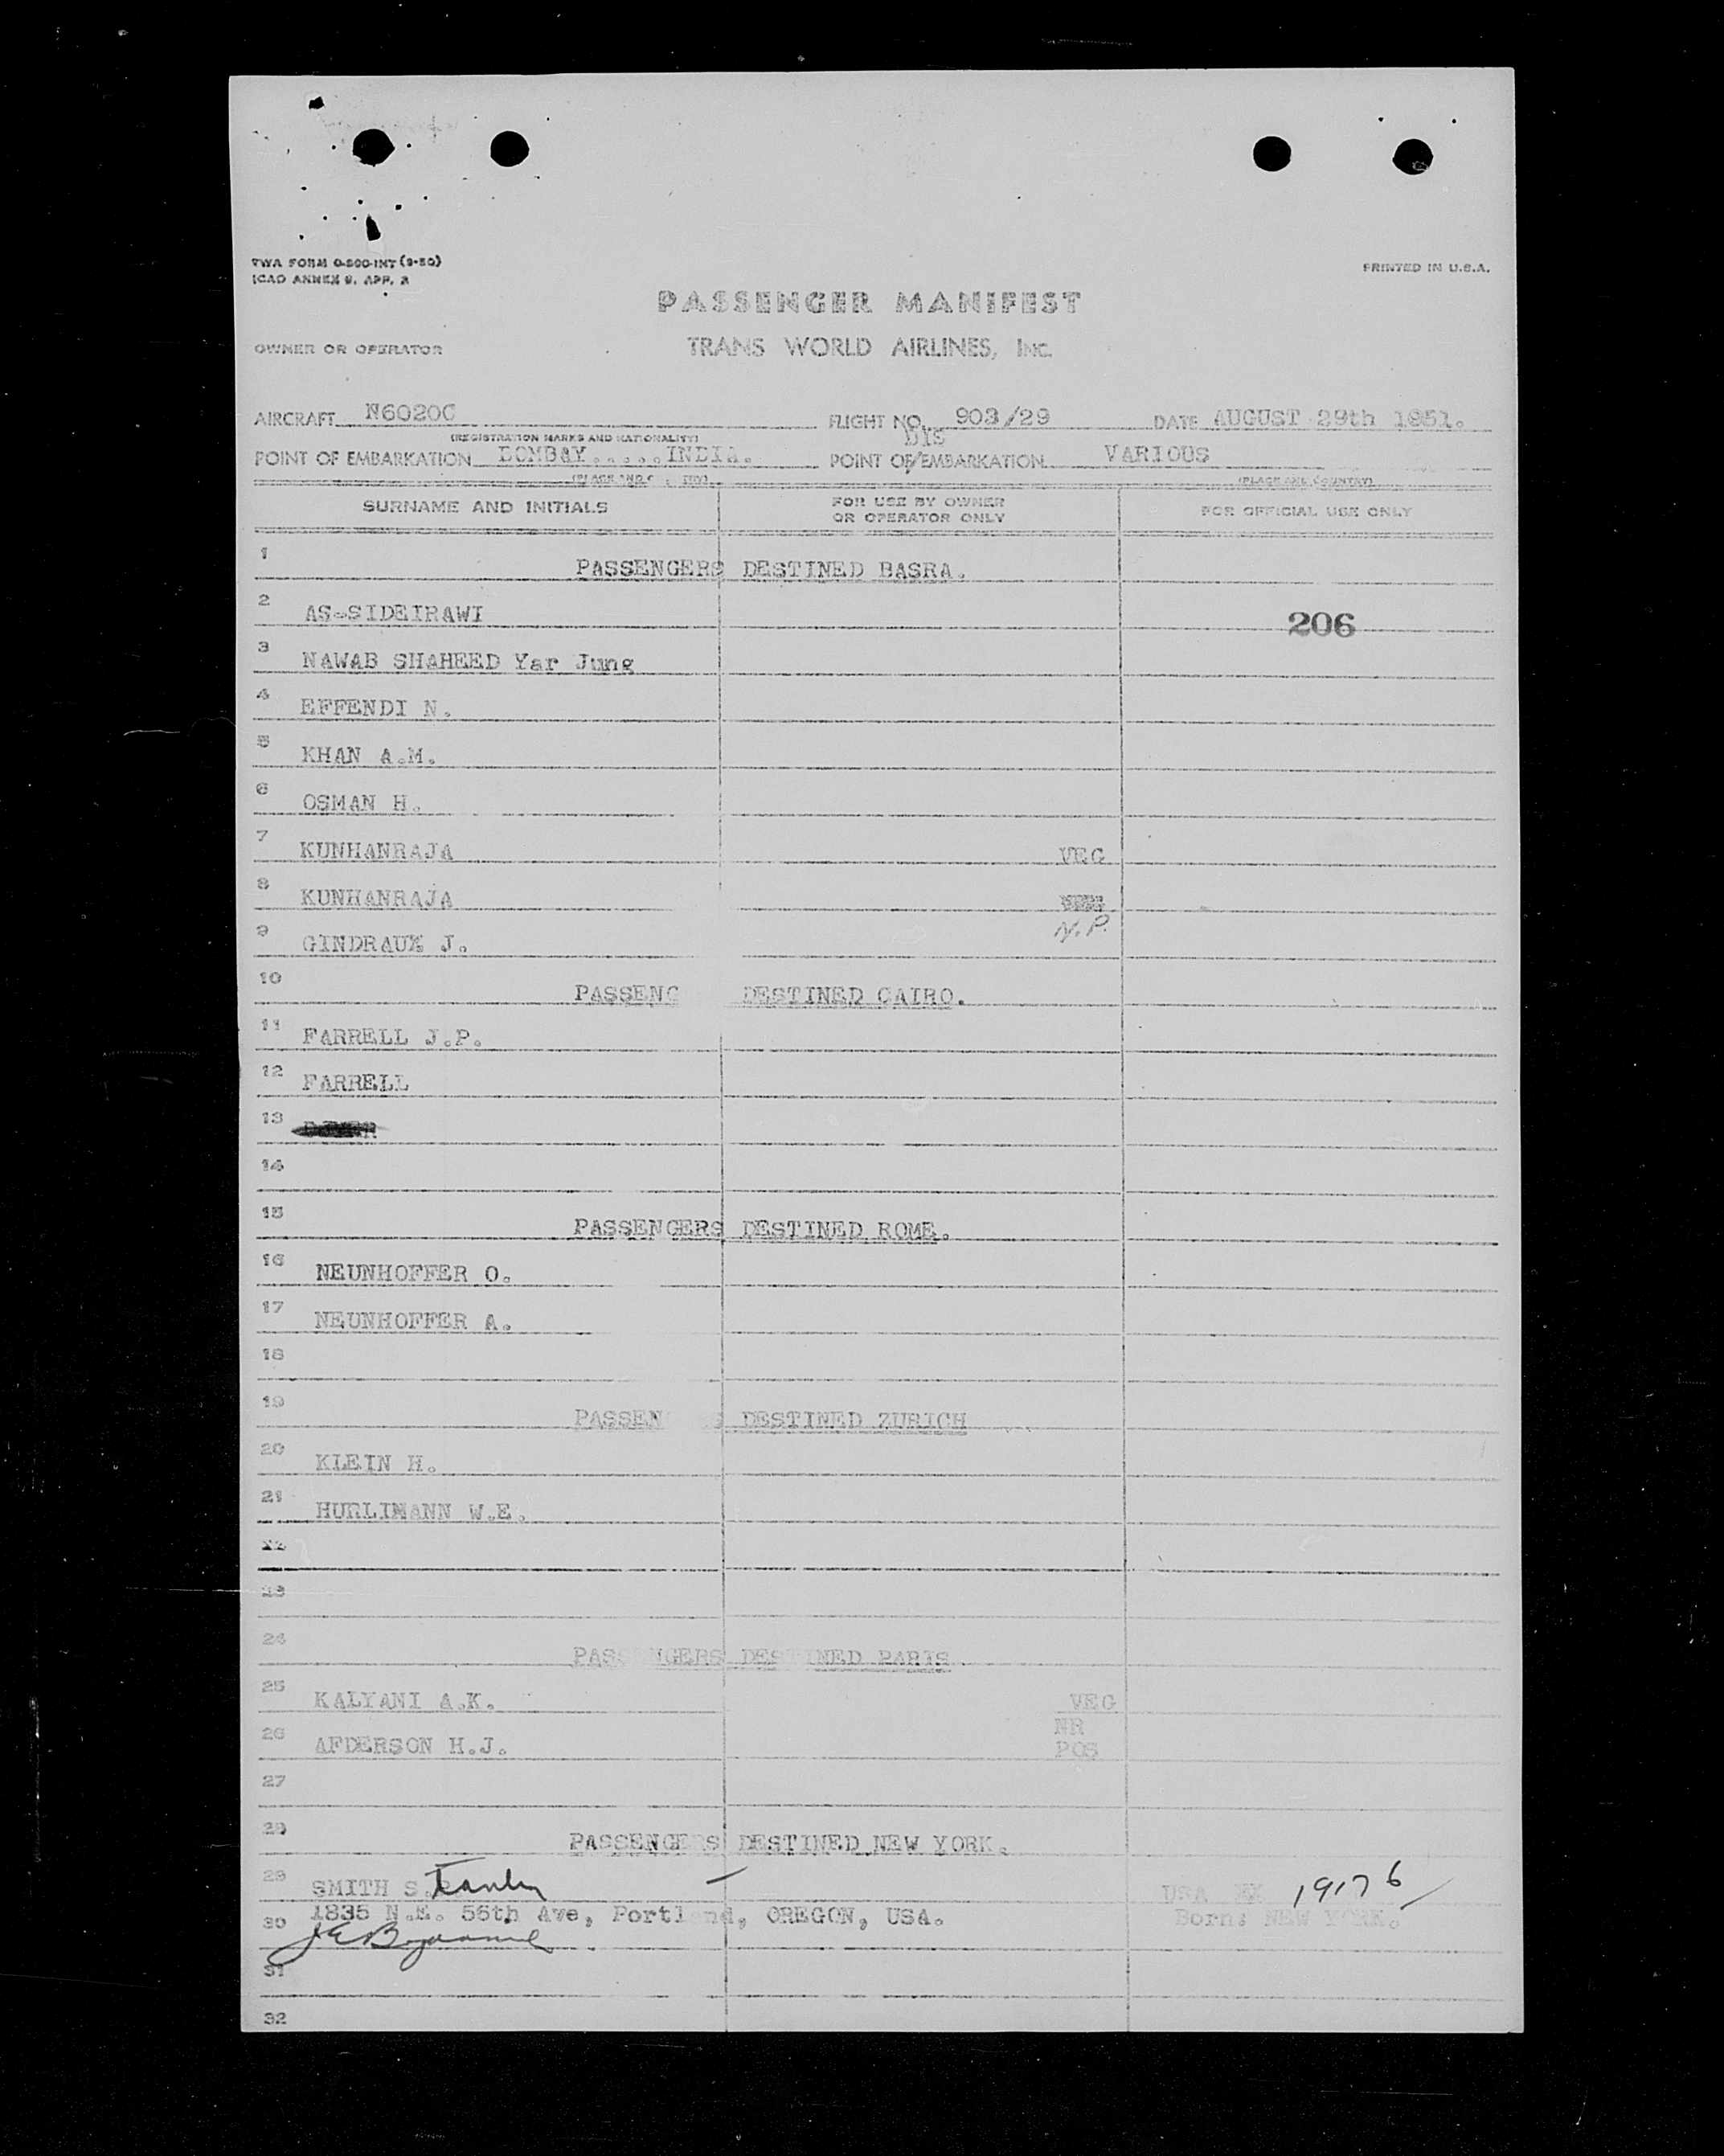 TWA FORM O-500-INT (9-50)
ICAO ANNEX 9, APP. 3
PRINTED IN U.S.A.
PASSENGER MANIFEST
OWNER OR OPERATOR
TRANS WORLD AIRLINES, INC.
AIRCRAFT N6020C FLIGHT NO. 903/29 DATE AUGUST 29th 1951.
(REGISTRATION MARKS AND NATIONALITY)
DIS
POINT OF EMBARKATION BOMBAY.....INDIA. POINT OF/EMBARKATION VARIOUS
(PLACE AND COUNTRY)
SURNAME AND INITIALS FOR USE BY OWNER OR OPERATOR ONLY FOR OFFICIAL USE ONLY
1 PASSENGERS DESTINED BASRA.
2 AS-SIDEIRAWI 206
3 NAWAB SHAHEED Yar Jung
4 EFFENDI N.
5 KHAN A.M.
6 OSMAN H.
7 KUNHANRAJA VEG
8 KUNHANRAJA
N.P.
9 GINDRAUX J.
10 PASSENG DESTINED CAIRO.
11 FARRELL J.P.
12 FARRELL
13
14
15 PASSENGERS DESTINED ROME.
16 NEUNHOFFER O.
17 NEUNHOFFER A.
18
19 PASSEN S DESTINED ZURICH
20 KLEIN H.
21 HURLIMANN W.E.
22
23
24 PASS NGERS DES INED PARIS
25 KALYANI A.K. VEG
NR
26 AFDERSON H.J. POS
27
28 PASSENGE S DESTINED NEW YORK.
29 SMITH S. Stanley USA 19176
1835 N.E. 56th Ave, Portl nd, OREGON, USA. Born: NEW YORK.
30
31
32